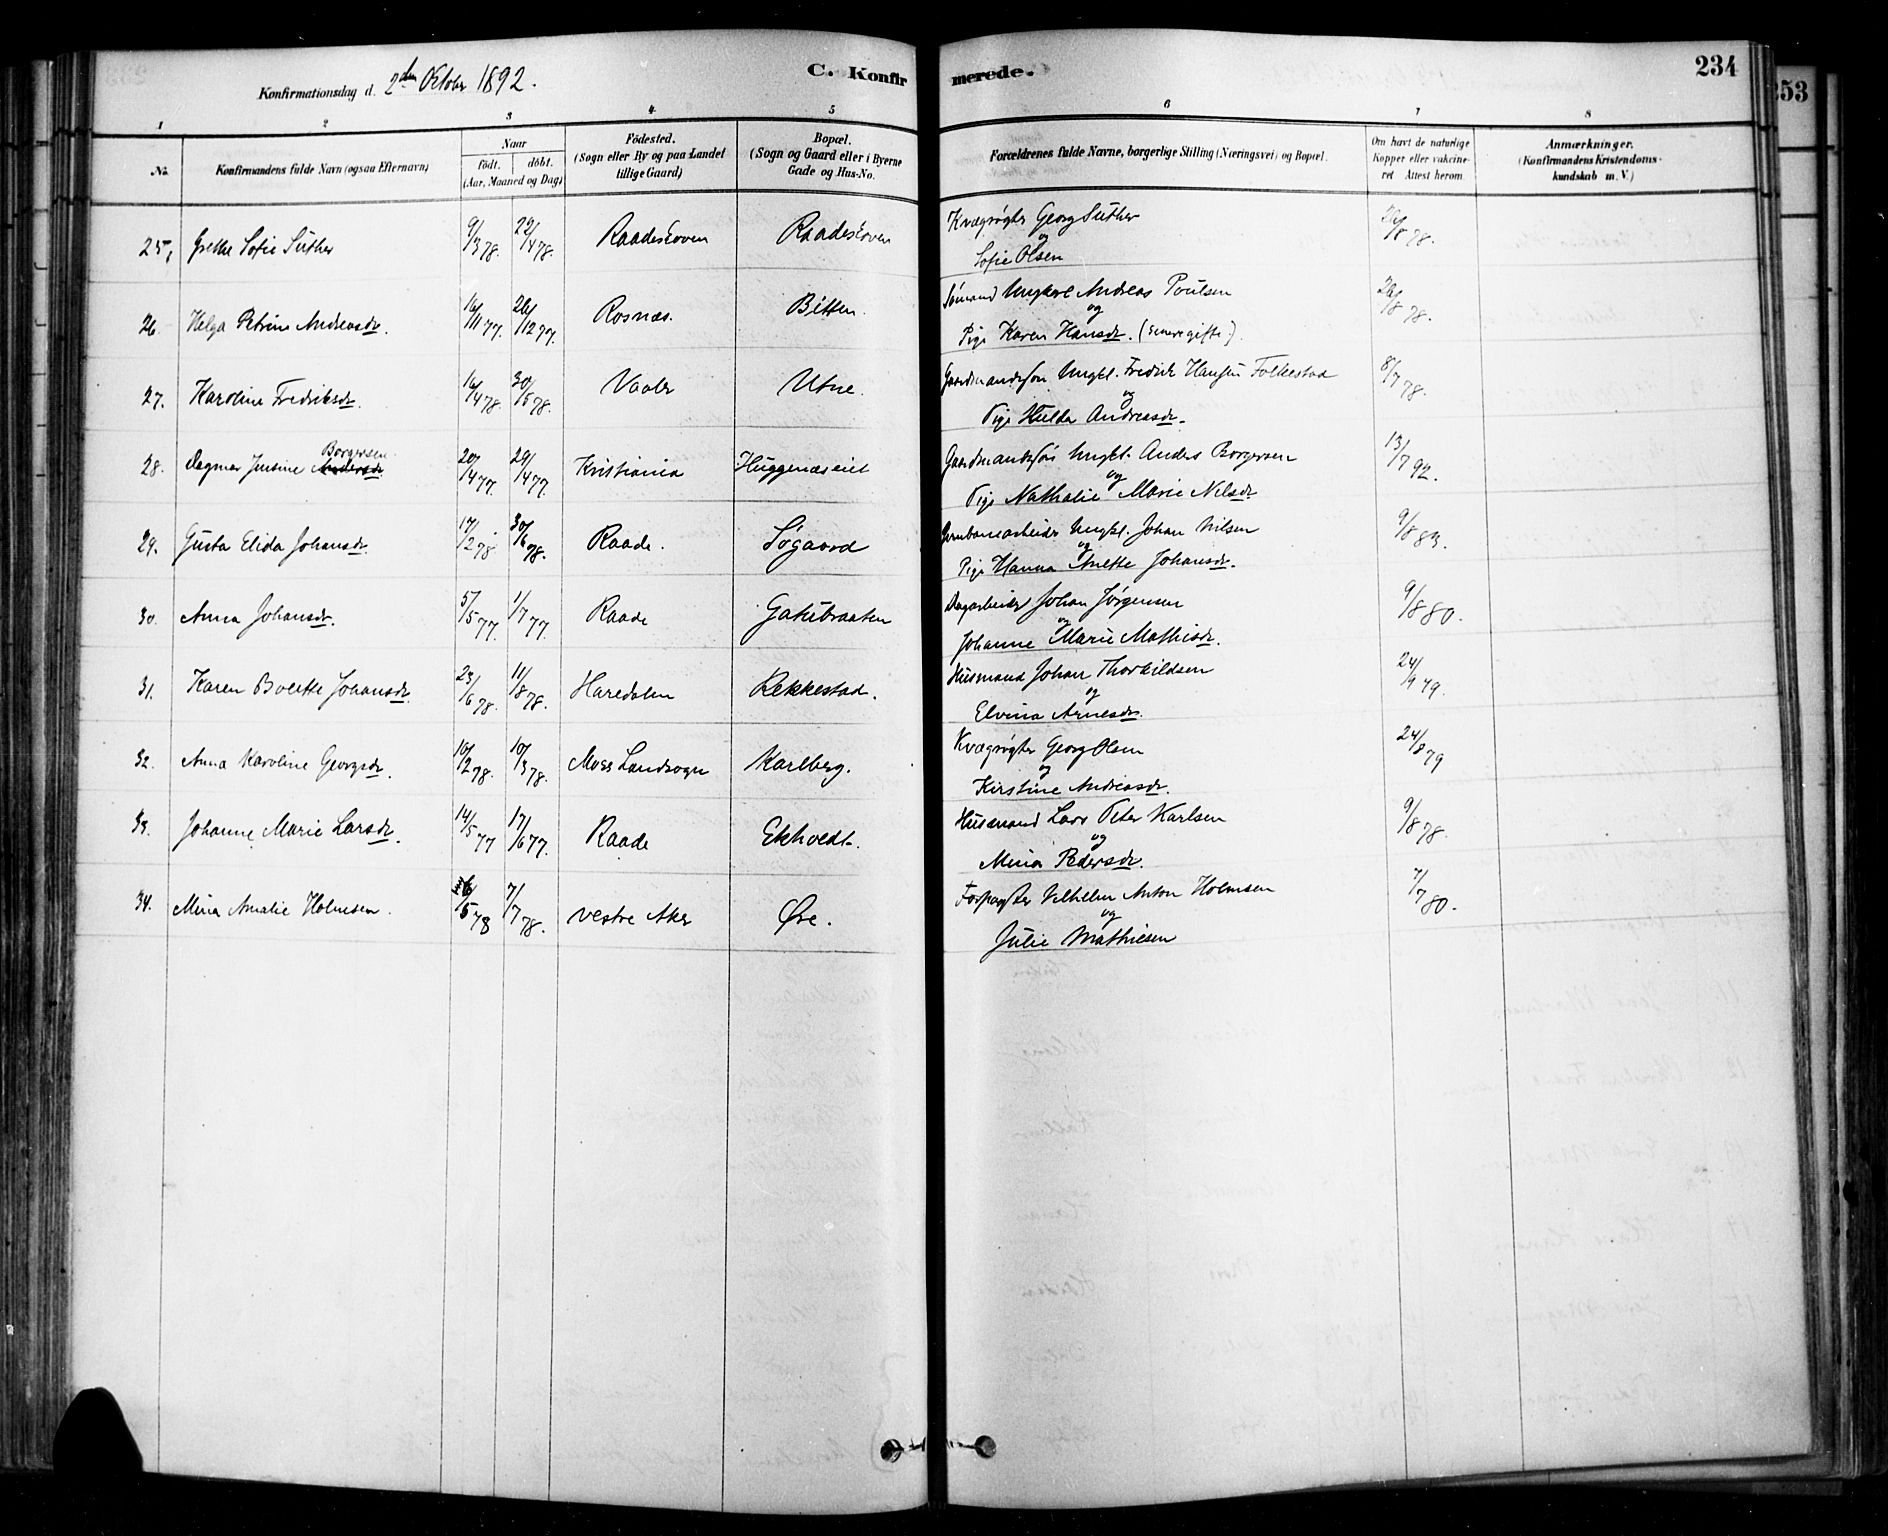 C. Konfirmerede.
234
253
Konfirmationsdag d. 2den Oktober 1892.
1 2 3 4 5 6 7 8
No. Konfirmandens fulde Navn (ogsaa Efternavn) Naar födt. döbt. (Aar, Maaned og Dag) Födested. (Sogn eller By og paa Landet tillige Gaard) Bopæl. (Sogn og Gaard eller i Byerne Gade og Hus-No. Forældrenes fulde Navne, borgerlige Stilling (Næringsvei) og Bopæl. Om havt de naturlige Kopper eller vakcineret Attest herom. Anmærkninger. (Konfirmandens Kristendomskundskab m. V.)
25, Grethe Sofie Suther 9/3 78. 22/4 78. Raadeskoven Raadeskoven Kvægrøgter Georg Suther /8 78.
og
Sofie Olsen
26. Helga Petrine Andreasdr. 16/11 77. 26/12 77. Rosnæs. Bitten. Sömand Ungkarl Andreas Poulsen /8 78.
og
Pige Karen Hansdr. (senere gifte).
27. Karoline Fredriksdr. 16/4 78. 30/6 78. Vaaler Utne. Gaardmandssön Ungkl. Fredrik Hansen Folkestad 8/7 78.
og
Pige Hulda Andreasdr.
28. Dagmar Justine Andersdr. Borgersen 20/4 77. 29/4 77. Kristiania Huggenæseiet Gaardmandssön Ungkl. Anders Borgersen 13/7 92.
og
Pige Nathalie Marie Nilsdr.
29. Gusta Elida Johansdr. 17/2 78. 30/6 78. Raade. Søgaard Jernbanearbeider Ungkl. Johan Nilsen 9/8 83.
og
Pige Hanna Anette Johansdr.
30. Anna Johansdr. 5/5 77. 1/7 77. Raade Gatubraaten Dagarbeider Johan Jørgensen 9/8 80.
og
Johanne Marie Mathisdr.
31. Karen Bolette Johansdr. 23/6 78. 11/8 78. Haredalen Rekkestad. Husmand Johan Thorkildsen 24/9 79.
og
Elvina Arnesdr.
32. Anna Karoline Georgsdr. 10/2 78. 10/3 78. Moss Landsogn Karlberg. Kvægrøgter Georg Olsen 24/8 79
og
Kirstine Andreasdr.
33. Johanne Marie Larsdr. 14/5 77 17/6 77. Raade Ekholdt. Husmand Lars Peter Karlsen 9/8 78.
og
Mina Pedersdr.
34. Mina Amalie Holmsen. /5 78 7/7 78. Vestre Aker Øre. Forpagter Vilhelm Anton Holmsen 7/7 80.
og
Julie Mathiesen